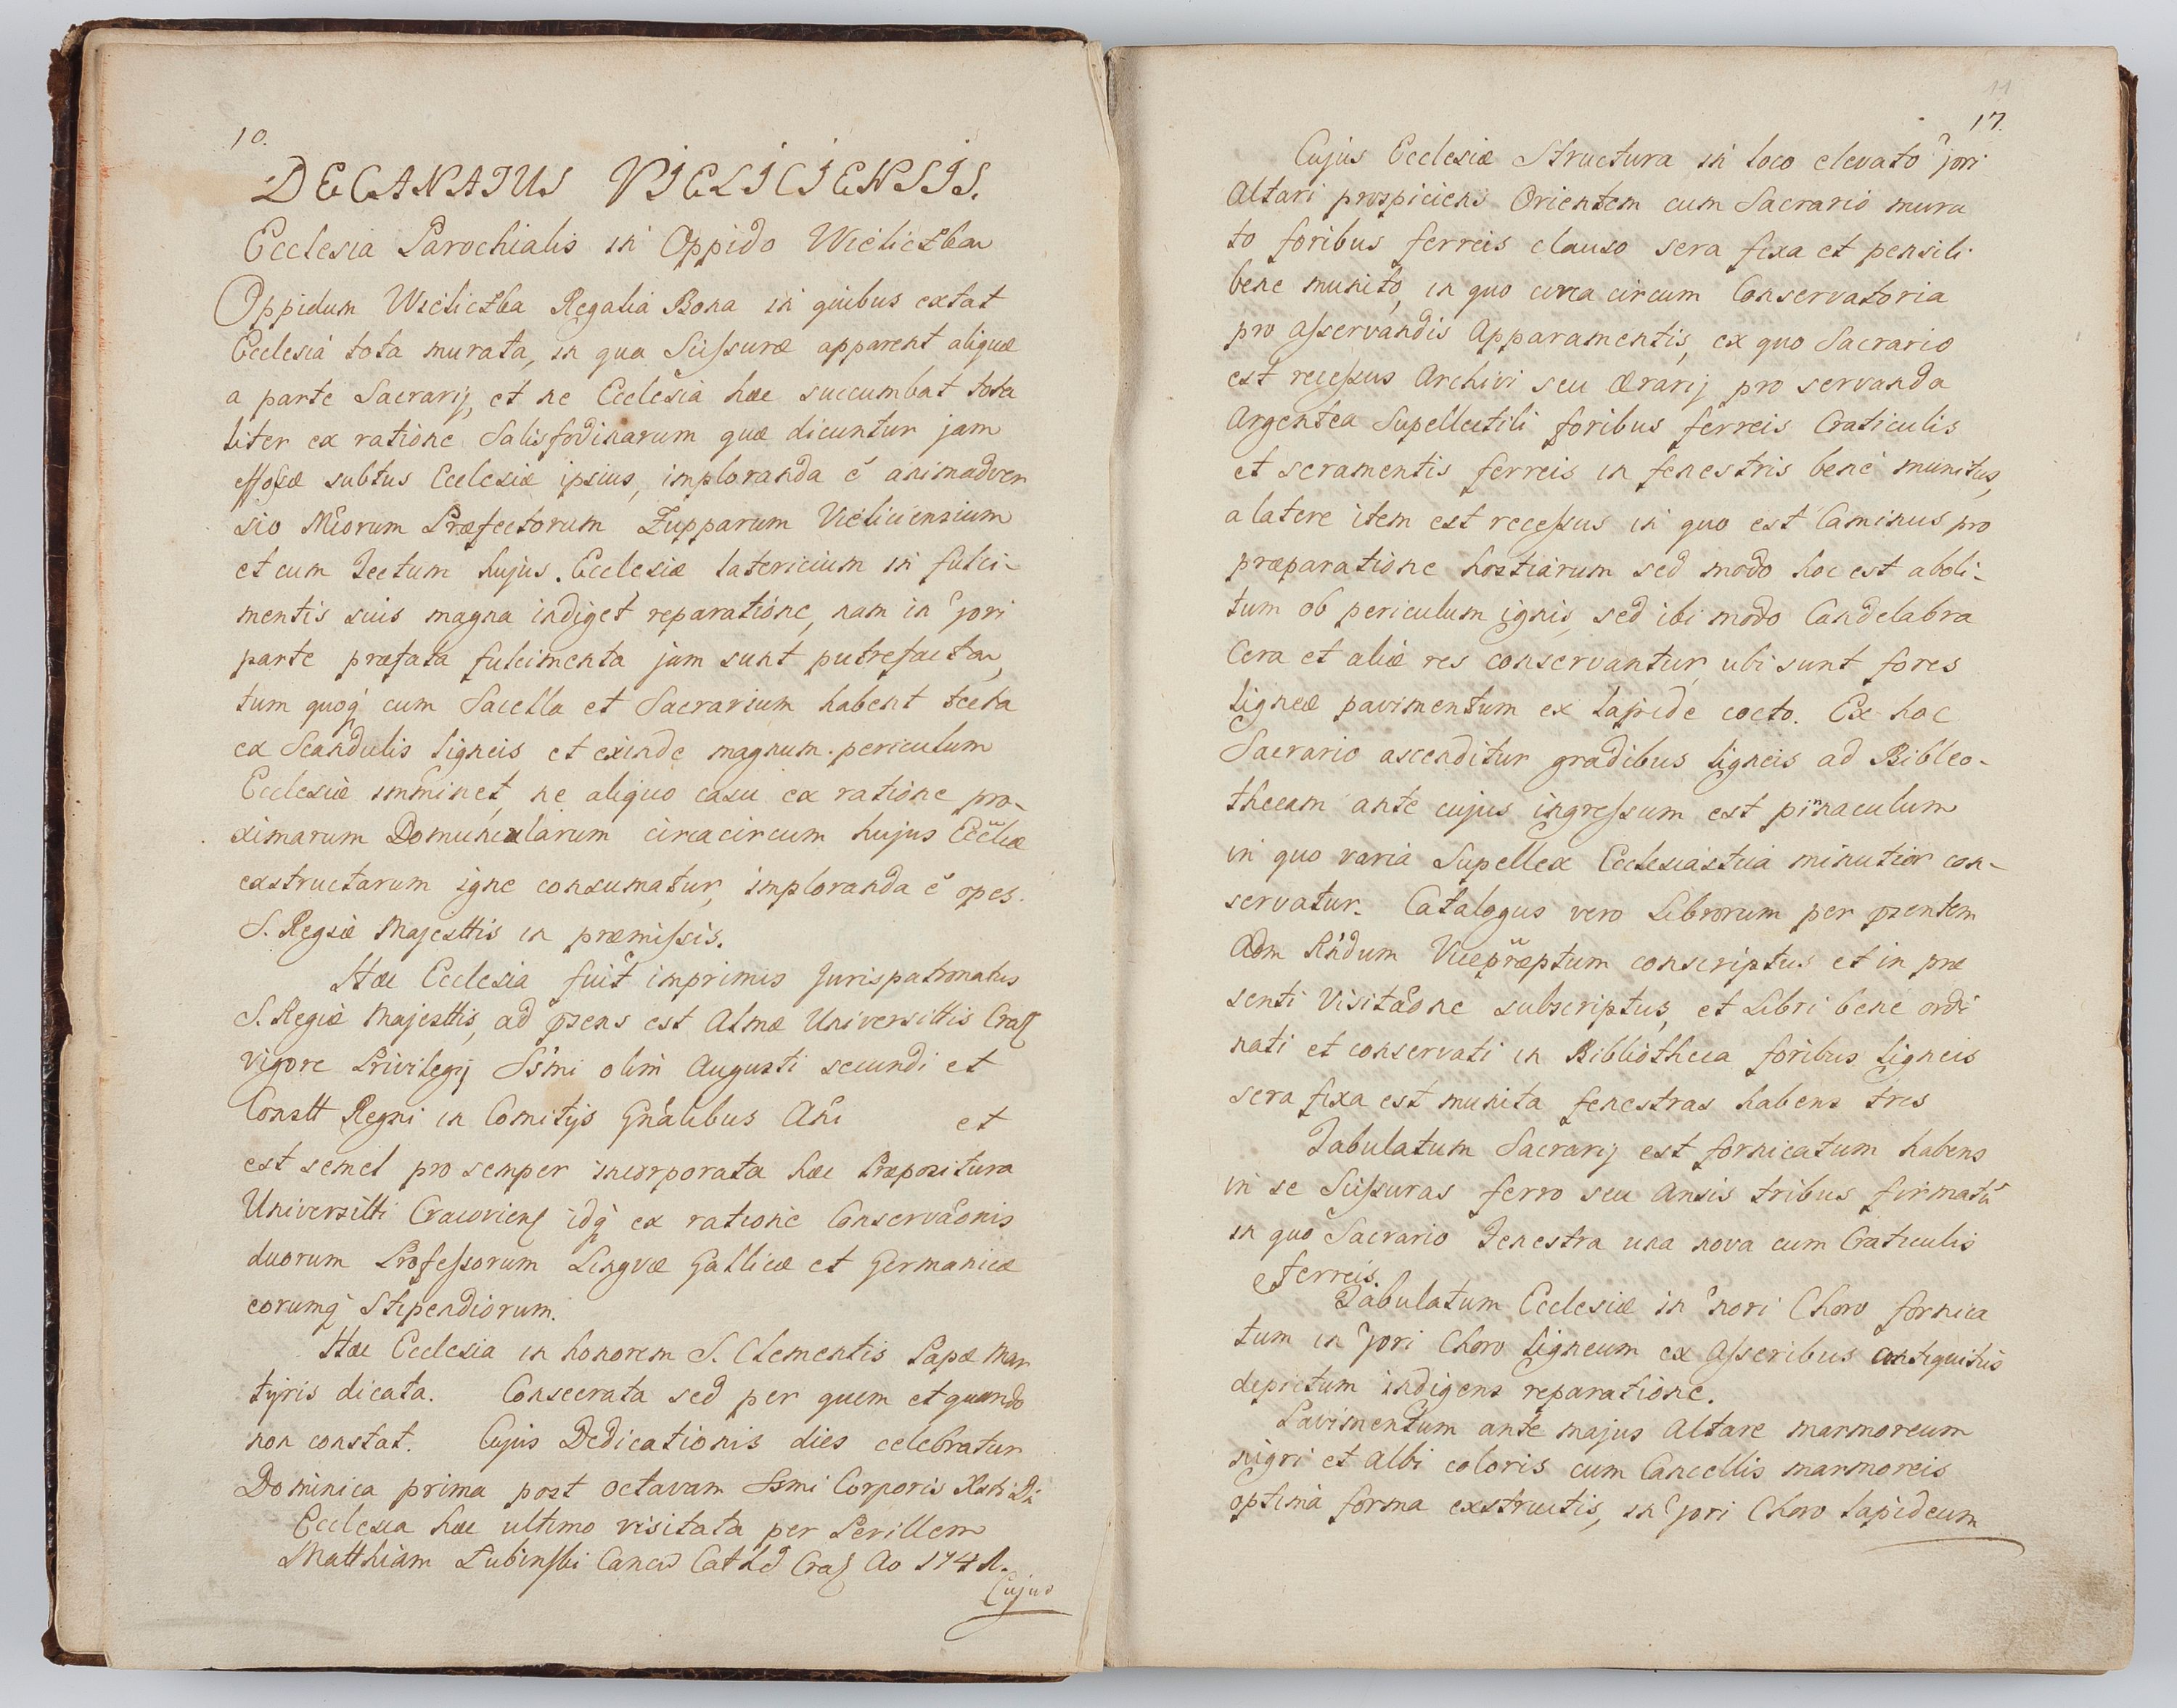 10.
DECANATUS VIELICIENSIS.
Ecclesia Parochialis in Oppido Wieliczka
Oppidum Wieliczka Regalia Bona in quibus extat
Ecclesia tota murata, in qua Scissuræ apparent aliquæ
a parte Sacrarij, et ne Ecclesia hæc succumbat tota
liter ex ratione Salisfodinarum quæ dicuntur jam
effossæ subtus Ecclesiæ ipsius, imploranda ẽ animadver
sio Præfectorum Zupparum Vieliciensium
et cum Tectum hujus Ecclesiæ latericium in fulci-
mentis suis magna indiget reparatione, nam in jori
parte præfata fulcimenta jam sunt putrefacta,
tum quoq́ cum Sacella et Sacrarium habent tecta
ex Scandulis ligneis et exinde magnum periculum
Ecclesiæ imminet, ne aliquo casu ex ratione pro-
ximarum Domuncularum circacircum hujus Eccliæ
exstructarum igne consumatur, imploranda ẽ opes.
S. Regiæ Majesttis in præmissis.
Hæc Ecclesia fuit imprimis Jurispatronatus
S. Regiæ Majesttis, ad præsens est Almæ Universittis Crac
vigore Privilegij Ssmi olim Augusti secundi et
Constt Regni in Comitijs Gnãlibus Ani et
est semel pro semper incorporata hæc Præpositura
Universitti Cracoviens idq́ ex ratione Conservãonis
duorum Professorum Lingvæ Gallicæ et Germanicæ
eorumq́ Stipendiorum.
Hæc Ecclesia in honorem S. Clementis Papæ Mar
tyris dicata. Consecrata sed per quem et quando
non constat. Cujus Dedicationis dies celebratur
Dominica prima post octavam Ssmi Corporis
Ecclesia hæc ultimo visitata per Perillem
Matthiam Łubinski Cancũ Cathd Crac Ao 1741.
Cujus
11
17.
Cujus Ecclesiæ Structura in loco elevato jori
Altari prospiciens Orientem cum Sacrario mura
to foribus ferreis clauso sera fixa et pensili
bene munito, in quo circa circum Conservatoria
pro asservandis Apparamentis, ex quo Sacrario
est recessus Archivi seu Ærarij pro servanda
Argentea Supellectili foribus ferreis Craticulis
et seramentis ferreis in fenestris bene munitus,
a latere item est recessus in quo est Caminus pro
præparatione hostiarum sed modo hoc est aboli-
tum ob periculum ignis, sed ibi modo Candelabra
Cera et aliæ res conservantur, ubi sunt fores
ligneæ pavimentum ex lapide cocto. Ex hoc
Sacrario ascenditur gradibus ligneis ad Biblio-
thecam ante cujus ingressum est pinnaculum
in quo varia Supellex Ecclesiastica minutior con-
servatur. Catalogus vero Librorum per præsentem
Adm Rńdum Vicepræptum conscriptus et in præ
senti Visitãone subscriptus, et Libri bene ordi
nati et conservati in Bibliotheca foribus ligneis
sera fixa est munita fenestras habens tres
Tabulatum Sacrarij est fornicatum habens
in se Scissuras ferro seu Ansis tribus firmatũ
in quo Sacrario Fenestra una nova cum Craticulis
ferreis.
Tabulatum Ecclesiæ in nori Choro fornica
tum in jori Choro ligneum ex Asseribus antiquitus
depictum indigens reparatione.
Pavimentum ante majus Altare marmoreum
nigri et albi coloris cum Cancellis marmoreis
optima forma exstructis, in jori Choro lapideum